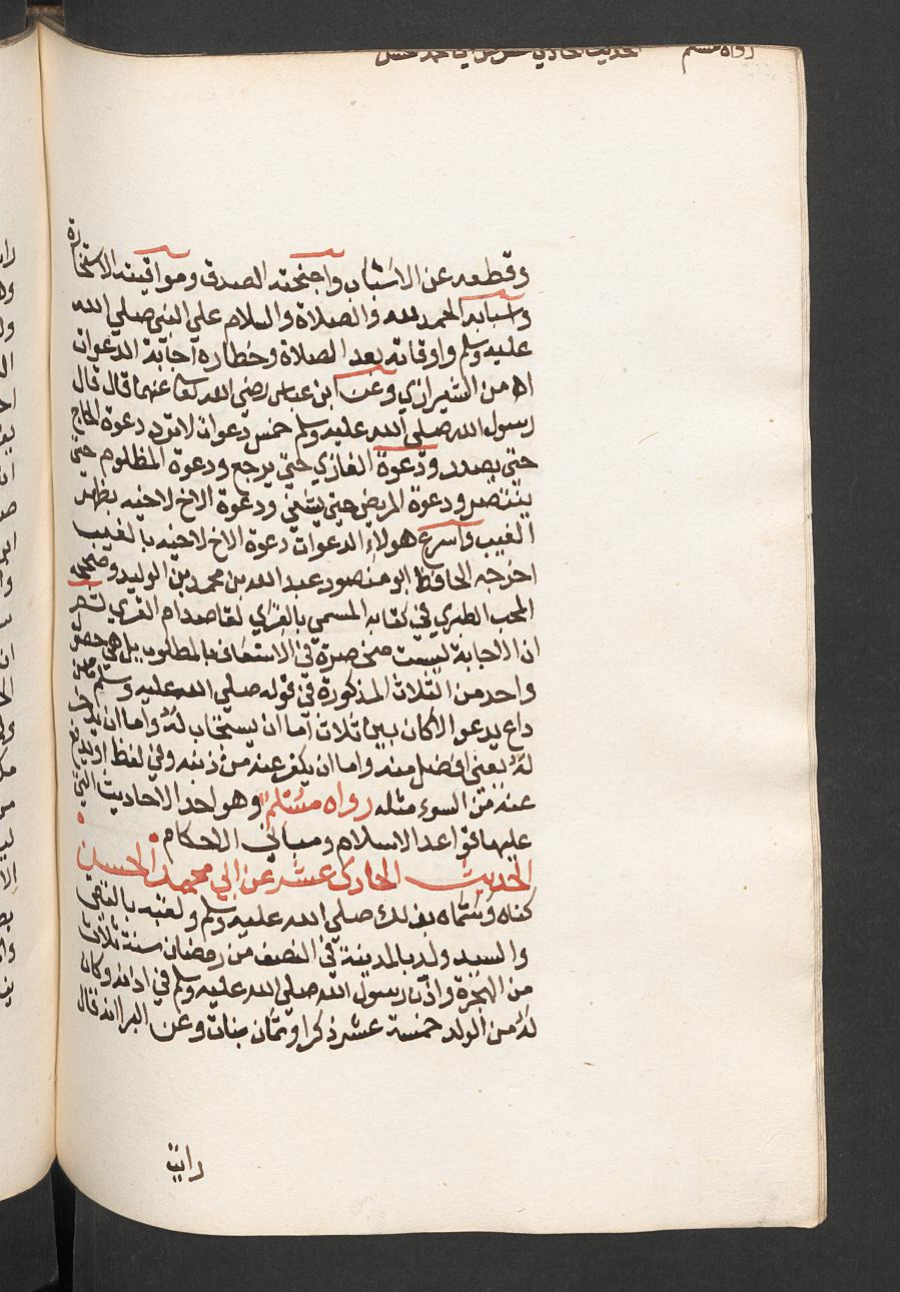 رواه مسلم
وقطعه عن الاسباب واجنحته الصدق ومواقيته الاستخارة
واسبابه الحمد لله والصلاة والسلام علي النبي صلي الله
عليه وسلم واوقاته بعد الصلاة وخطاره اجابة الدعوات
اه من الشيرازي وعن ابن عباس رضي الله تعا عنهما قال قال
رسول الله صلي الله عليه وسلم خمس دعوات لا ترد دعوة الحاج
حتي يصدر ودعوة الغازي حتي يرجع ودعوة المظلوم حتي
ينتصر ودعوة المريض حتي يشفي ودعوة الاخ لاخيه بظهر
الغيب واسرع هولاء الدعوات دعوة الاخ لاخيه بالغيب
اخرجه الحافظ ابو منصور عبد الله بن محمد بن الوليد وصححه
المحب الطبري في كتابه المسمي بالقري لقاصد ام القري
ان الاجابة ليست منحصرة في الاسعاف بالمطلوب بل هي حصو
واحد من الثلاث المذكورة في قوله صلي الله عليه وسلم ما من
داع يدعو الا كان بين ثلاث اما ان يستجاب له واما ان يدخر
له يعني افضل منه واما ان يكفر عنه من ذنبه وفي لفظ او يدفع
عنه من السوء مثله رواه مسلم وهو احد الاحاديث التي
عليها قواعد الاسلام ومباني الاحكام
الحديث الحادي عشر عن ابي محمد الحسن
كناه وسماه بذلك صلي الله عليه وسلم ولقبه بالتقي
والسيد ولد بالمدينة في النصف من رمضان سنة ثلاث
من الهجرة واذن رسول الله صلي الله عليه وسلم في اذنه وكان
له من الولد خمسة عشر ذكرا وثمان بنات وعن البرا انه قال
رايت